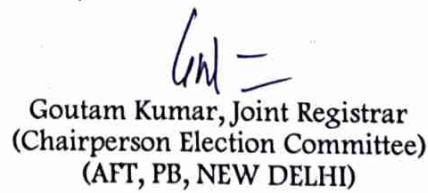 Goutam Kumar, Joint Registrar
(Chairperson Election Committee)
(AFT, PB, NEW DELHI)